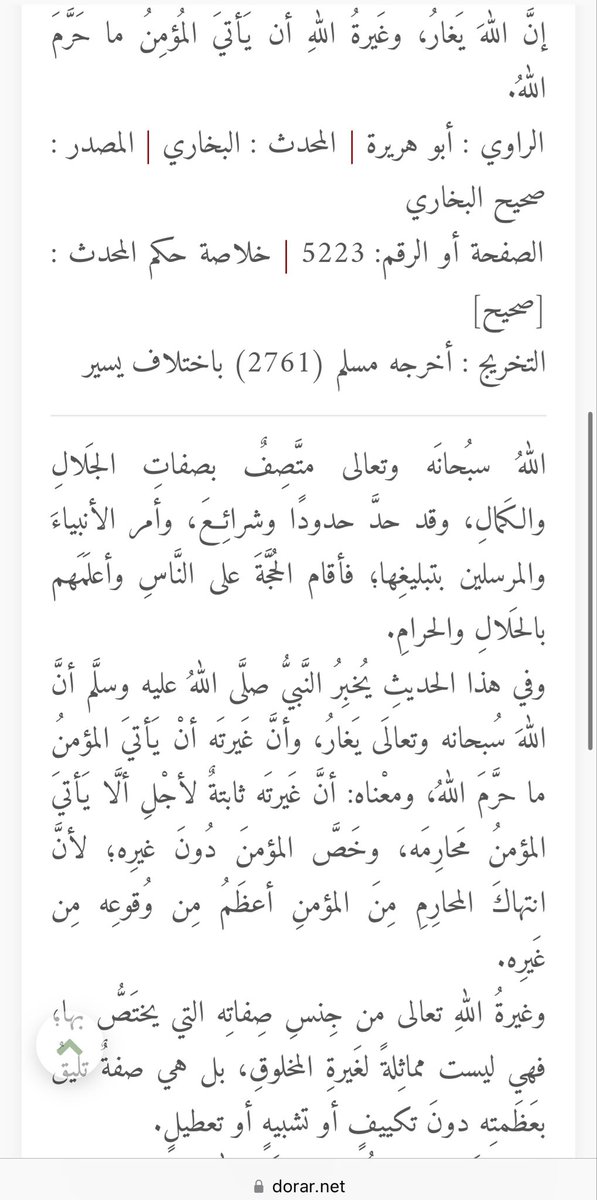 إنَّ اللهَ يَغارُ، وغَيرةُ اللهِ أن يَأتيَ المُؤمِنُ ما حَرَّمَ
اللهُ.
الراوي : أبو هريرة | المحدث : البخاري | المصدر :
صحيح البخاري
الصفحة أو الرقم: 5223 | خلاصة حكم المحدث :
[صحيح]
التخريج : أخرجه مسلم (2761) باختلاف يسير
اللهُ سبُحانَه وتعالى متَّصِفٌ بصفاتِ الجَلالِ
والكَمالِ، وقد حدَّ حدودًا وشرائِعَ، وأمر الأنبياءَ
والمرسلين بتبليغِها؛ فأقام الحُجَّةَ على النَّاسِ وأعلَمَهم
بالحَلالِ والحرامِ.
وفي هذا الحديثِ يُخبِرُ النَّبيُّ صلَّى اللهُ عليه وسلَّم أنَّ
اللهَ سُبحانه وتعالَى يَغارُ، وأنَّ غَيرتَه أنْ يَأتيَ المؤمنُ
ما حرَّمَ اللهُ، ومعْناه: أنَّ غَيرتَه ثابتةٌ لأجْلِ ألَّا يَأتيَ
المؤمنُ مَحارِمَه، وخَصَّ المؤمنَ دُونَ غيرِه؛ لأنَّ
انتهاكَ المحارِمِ مِنَ المؤمنِ أعظَمُ مِن وُقوعِه مِن
غَيرِه.
وغَيرةُ اللهِ تعالى من جِنسِ صِفاتِه التي يختَصُّ بها؛
فهي ليست مماثِلةً لغَيرةِ المخلوقِ، بل هي صفةٌ تليقُ
بعَظَمتِه دونَ تكييفٍ أو تشبيهٍ أو تعطيلٍ.
dorar.net